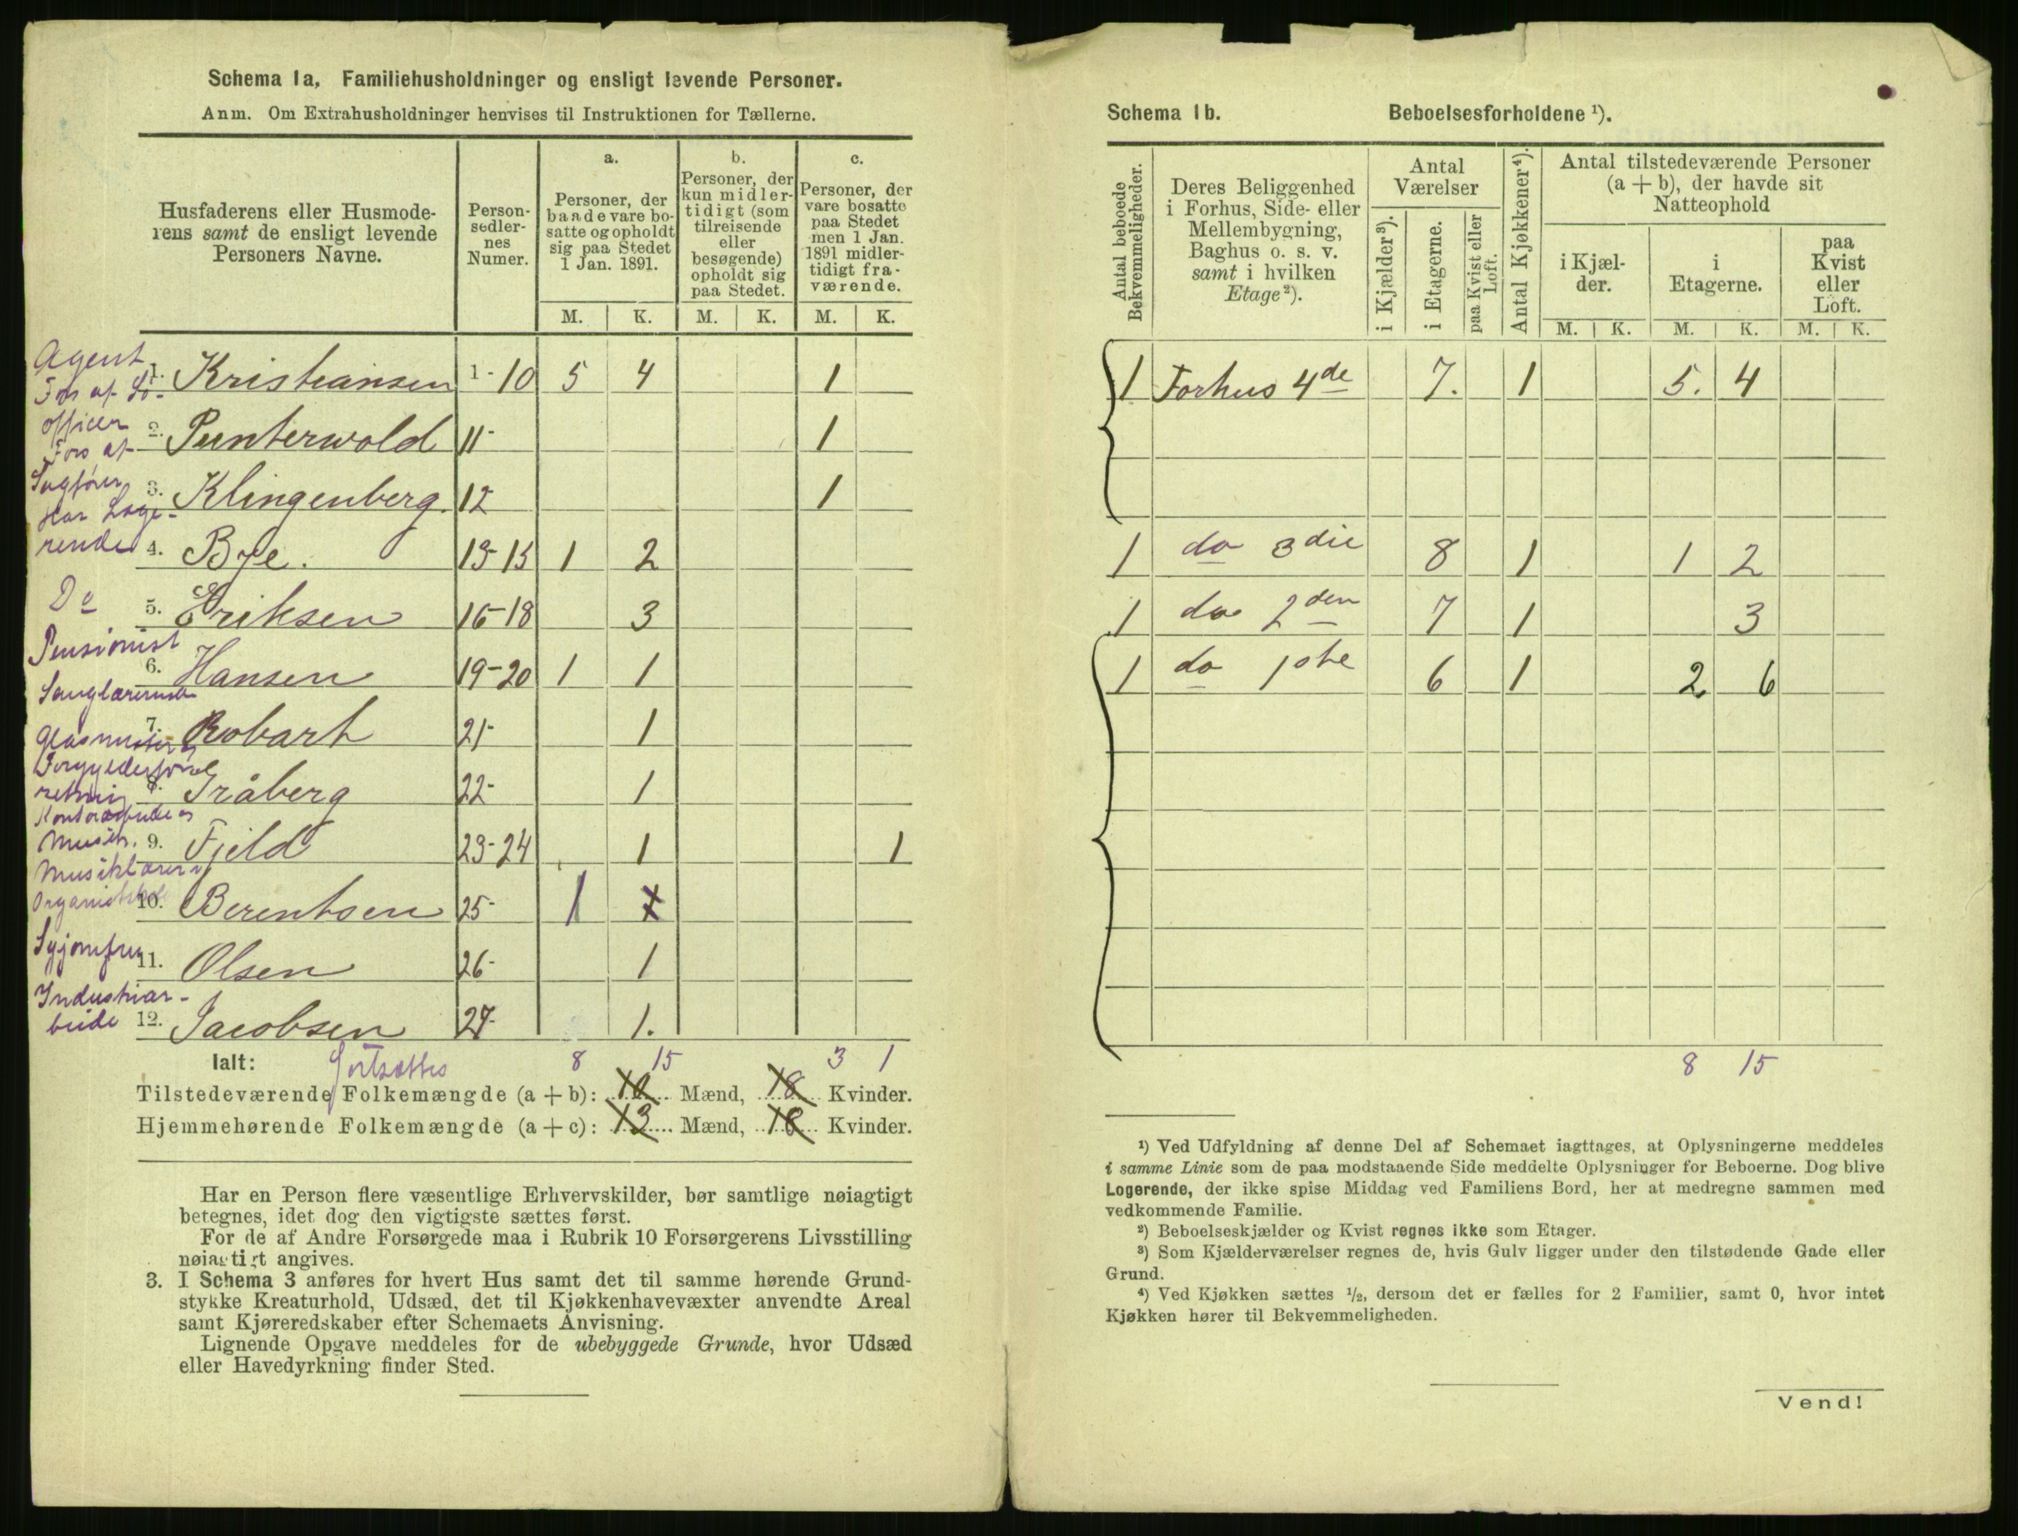 Schema 1a, Familiehusholdninger og ensligt levende Personer.
Anm. Om Extrahusholdninger henvises til Instruktionen for Tællerne.
Husfaderens eller Husmoderens samt de ensligt levende Personers Navne.
Personsedlernes Numer.
a. Personer, der baade vare bosatte og opholdt sig paa Stedet 1 Jan. 1891.
b. Personer, der kun midlertidigt (som tilreisende eller besøgende) opholdt sig paa Stedet.
c. Personer, der vare bosatte paa Stedet men 1 Jan. 1891 midlertidigt fraværende.
M. K. M. K. M. K.
Agent 1. Kristiansen 1-10 5 4 1
Fors af
officer 2. Punterwold 11- 1
Fors af
Sagfører 3. Klingenberg. 12 1
Har Loge-
rende 4. Bye. 13-15 1 2
Do 5. Eriksen 16-18 3
Pensionist 6. Hansen 19-20 1 1
Sanglærerinde 7. Robart 21- 1
Glasmester og
Forgylderfor
retning 8. Gråberg 22- 1
Kontorarbeide og
Musik. 9. Fjeld 23-24 1 1
Musiklærer
Organist 10. Berentsen 25- 1
Syjomfru 11. Olsen 26- 1
Industriar-
beide 12. Jacobsen 27- 1.
Ialt: Fortsættes 8 15 3 1
Tilstedeværende Folkemængde (a + b): 10 Mænd, 18 Kvinder.
Hjemmehørende Folkemængde (a + c): 13 Mænd, 18 Kvinder.
Har en Person flere væsentlige Erhvervskilder, bør samtlige nøiagtigt
betegnes, idet dog den vigtigste sættes først.
For de af Andre Forsørgede maa i Rubrik 10 Forsørgerens Livsstilling
nøiagtigt angives.
3. I Schema 3 anføres for hvert Hus samt det til samme hørende Grund-
stykke Kreaturhold, Udsæd, det til Kjøkkenhavevæxter anvendte Areal
samt Kjøreredskaber efter Schemaets Anvisning.
Lignende Opgave meddeles for de ubebyggede Grunde, hvor Udsæd
eller Havedyrkning finder Sted.
Schema 1b. Beboelsesforholdene ¹).
Antal beboede Bekvemmeligheder.
Deres Beliggenhed i Forhus, Side- eller Mellembygning, Baghus o. s. v. samt i hvilken Etage ²).
Antal Værelser
i Kjælder ³).
i Etagerne.
paa Kvist eller Loft.
Antal Kjøkkener ⁴).
Antal tilstedeværende Personer (a + b), der havde sit Natteophold
i Kjælder.
i Etagerne.
paa Kvist eller Loft.
M. K. M. K. M. K.
1 Forhus 4de 7. 1 5. 4
1 do 3die 8 1 1 2
1 do 2den 7 1 3
1 do 1ste 6 1 2 6
8 15
¹) Ved Udfyldning af denne Del af Schemaet iagttages, at Oplysningerne meddeles
i samme Linie som de paa modstaaende Side meddelte Oplysninger for Beboerne. Dog blive
Logerende, der ikke spise Middag ved Familiens Bord, her at medregne sammen med
vedkommende Familie.
²) Beboelseskjælder og Kvist regnes ikke som Etager.
³) Som Kjælderværelser regnes de, hvis Gulv ligger under den tilstødende Gade eller
Grund.
⁴) Ved Kjøkken sættes ½, dersom det er fælles for 2 Familier, samt 0, hvor intet
Kjøkken hører til Bekvemmeligheden.
Vend!